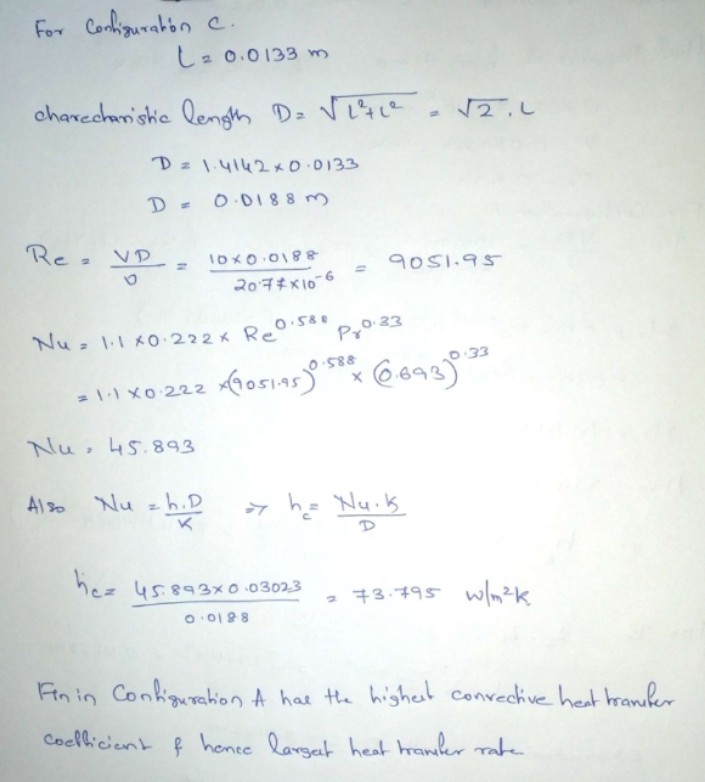 For Configuration C.
L = 0.0133 m
charecharistic length D = √L²+L² = √2 . L
D = 1.4142 x 0.0133
D = 0.0188 m
Re = VD/υ = 10x0.0188/20.77x10⁻⁶ = 9051.95
Nu = 1.1 x0.222 x Re^0.588 Pr^0.33
= 1.1 x0.222 x(9051.95)^0.588 x (0.693)^0.33
Nu = 45.893
Also Nu = h.D/K => h_c = Nu.K/D
h_c = 45.893x0.03023/0.0188 = 73.795 W/m²K
Fin in Configuration A has the highest convective heat transfer
coefficient & hence largest heat transfer rate